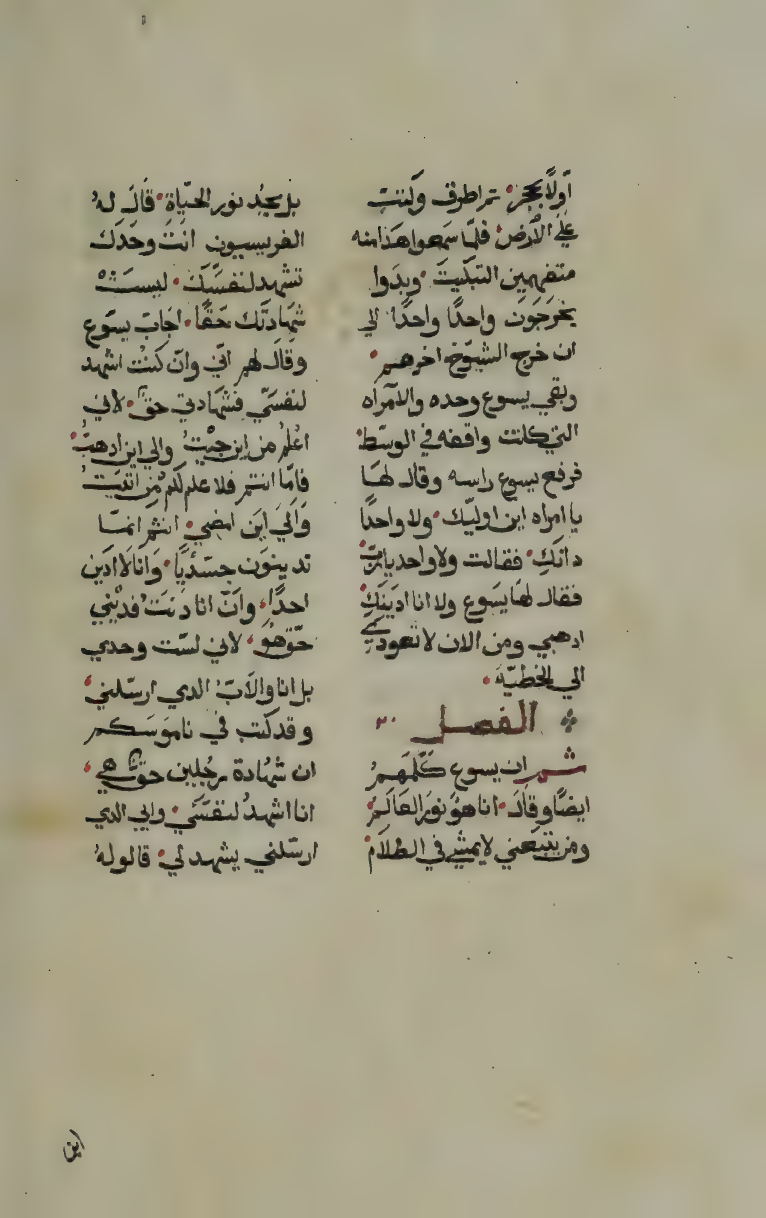 اولًا بحجر. تم اطرق وكتب
علي الارض. فلما سمعوا هذا منه
متفهمين التبكيت. وبدوا
يخرجون واحدًا واحدًا الي
ان خرج الشيوخ اخرهم.
وبقي يسوع وحده والامراه
التي كانت واقفه في الوسط.
فرفع يسوع راسه وقال لها
يا امراه اين اوليك. ولا واحدًا
دانكِ. فقالت ولا واحد يارب
فقال لها يسوع ولا انا ادينكِ
ادهبي ومن الان لا تعودي
الي الخطيّة.
الفصل ٢٠
ثم ان يسوع كلمهم
ايضًا وقال. انا هو نور العالم
ومن يتبعني لا يمشي في الظلام
بل يجد نور الحياة. قال له
الفريسيون انت وحدك
تشهد لنفسك. ليست
شهادتك حقًا. اجاب يسوع
وقال لهم اني وان كنت اشهد
لنفسي فشهادتي حق. لاني
اعلم من اين جيت والي اين ادهب
فاما انتم فلا علم لكم من اين اتيت
والي اين امضي. انتم انما
تدينون جسديًا. وانا لا ادين
احدًا. وان انا دنت فديني
حق هو. لاني لست وحدي
بل انا والاب الدي ارسلني.
وقد كتب في ناموسكم
ان شهادة رجلين حق هي.
انا اشهد لنفسي. وابي الدي
ارسلني يشهد لي. قالوا له
اين